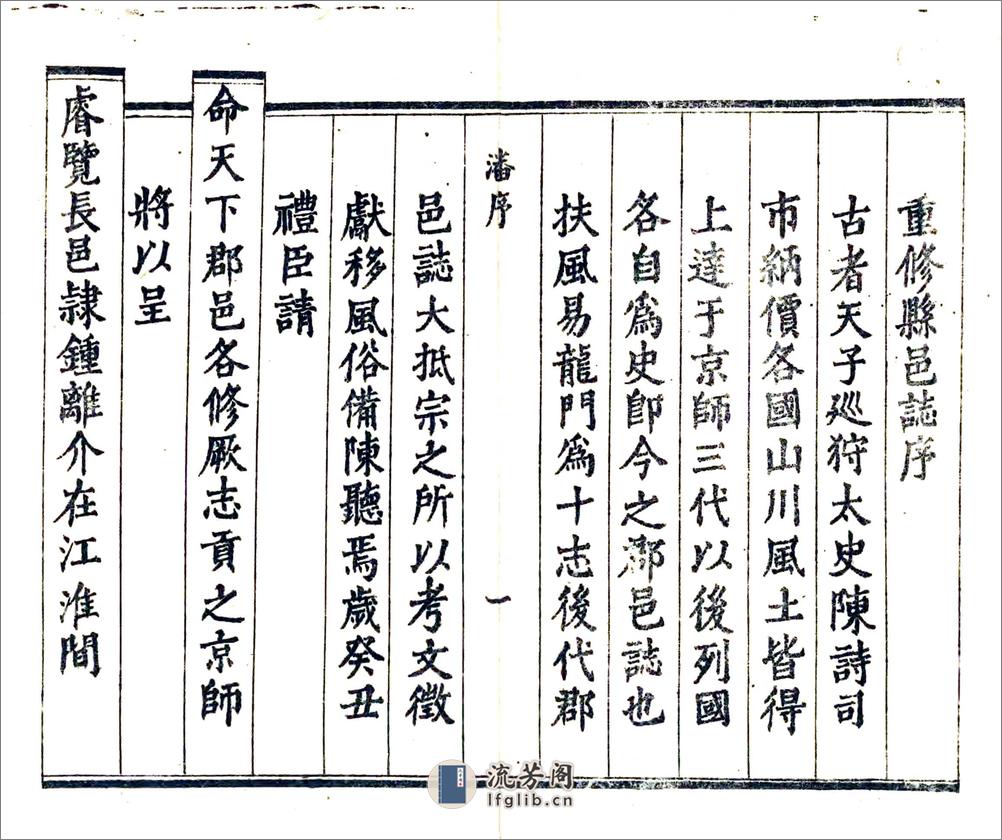 重修縣邑誌序
古者天子廵狩太史陳詩司
市納價各國山川風土皆得
上達于京師三代以後列國
各自為史卽今之郡邑誌也
扶風易龍門為十志後代郡
潘序
一
邑誌大抵宗之所以考文徵
獻移風俗備陳聽焉歲癸丑
禮臣請
命天下郡邑各修厥志貢之京師
將以呈
睿覽長邑隷鍾離介在江淮間
流芳阁
lfglib.cn